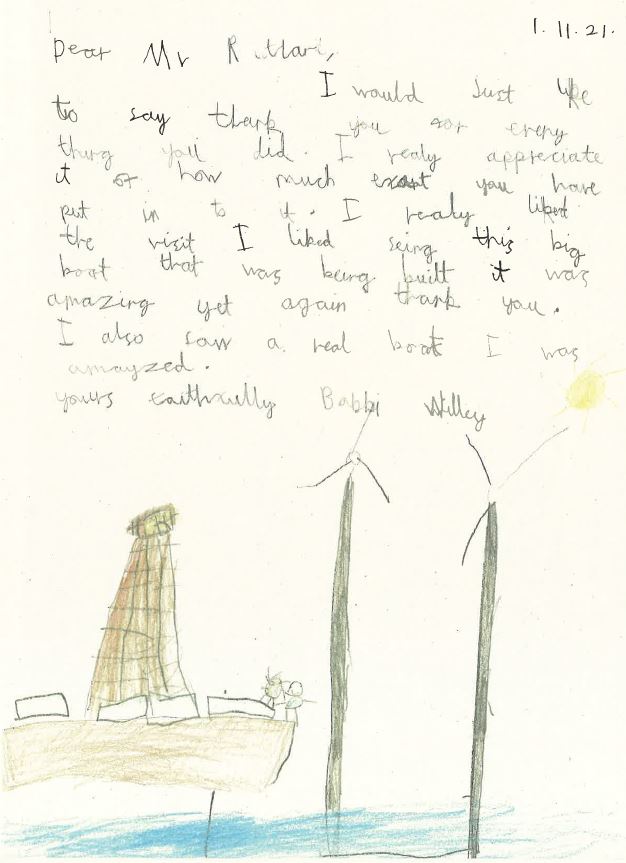 1.11.21.
Dear Mr R
I would Just like
to say thank you for every
thing you did. I realy appreciate
it or how much you have
put in to it. I realy liked
the visit I liked seing this big
boat that was being built it was
amazing yet again thank you.
I also saw a real boat I was
amayzed.
yours faithfully Babbi Willey